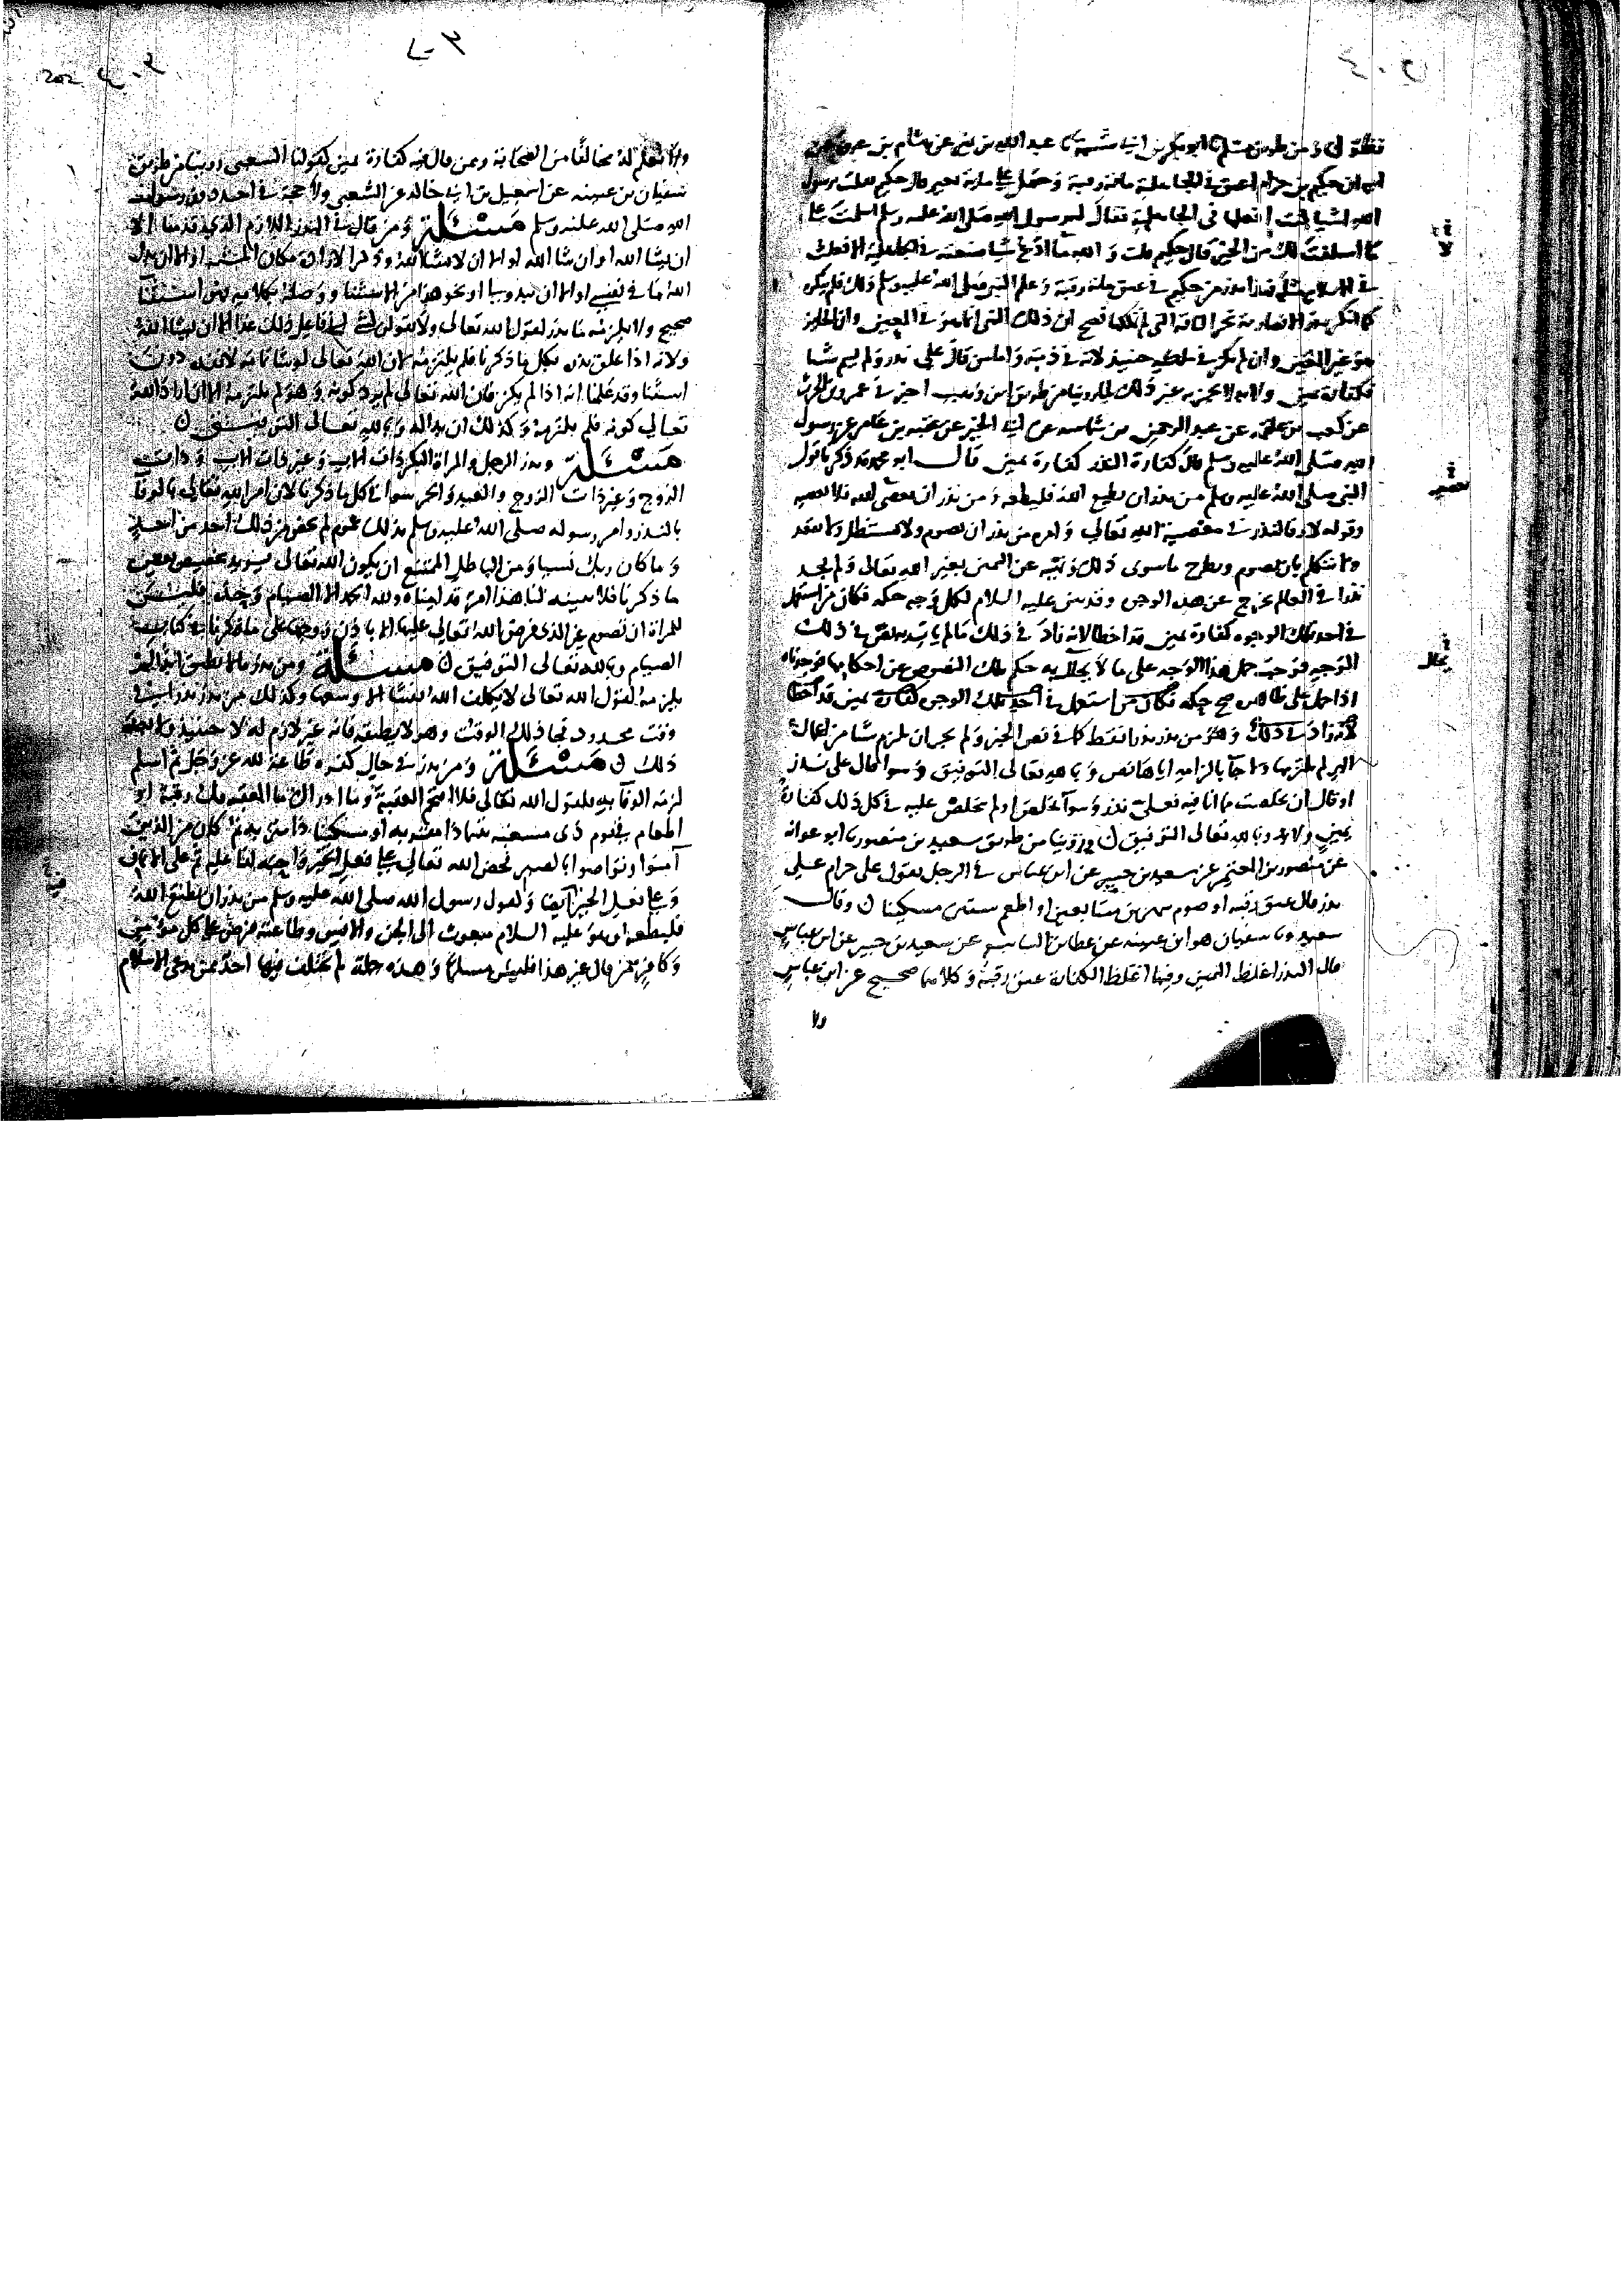 ومن طريق مسلم نا ابو بكر بن ابي شيبة نا عبد الله بن نمير عن هشام بن عروة عن
ابيه ان حكيم بن حزام اعتق في الجاهلية مائة رقبة وحمل على مائة بعير قال حكيم فقلت يرسول
الله اشيا كنت افعلها في الجاهلية فقال لي رسول الله صلى الله عليه وسلم اسلمت على
ما اسلفت لك من الخير قال حكيم قلت والله لا ادع شيا صنعته في الجاهلية الا فعلت
في الاسلام مثله فهذا نذر من حكيم في عتق مائة رقبة وعلم النبي صلى الله عليه وسلم ذلك فلم ينكره
كما انكر نذر الانصارية نحر الناقة التي لم تملكها فصح ان ذلك النهي انما هو في المعين وان الجايز
هو غير المعين وان لم يكن في ملكه حينئذ لانه في ذمته واما من قال علي نذر ولم يسم شيا
فكفارة يمين ولا بد لا يجزيه غير ذلك لما روينا من طريق ابن وهب اخبرني عمرو بن الحرث
عن كعب بن علقمة عن عبد الرحمن بن شماسة عن ابي الخير عن عقبة بن عامر عن رسول
الله صلى الله عليه وسلم قال كفارة النذر كفارة يمين قال ابو محمد قد ذكرنا قول
النبي صلى الله عليه وسلم من نذر ان يطيع الله فليطعه ومن نذر ان يعصي الله فلا يعصه
وقوله لا وفا لنذر في معصية الله تعالى وامره من نذر ان يصوم ولا يستظل ولا يقعد
ولا يتكلم بان يصوم ويطرح ما سوى ذلك ونهيه عن اليمين بغير الله تعالى ولم نجد
نذرا في العالم يخرج عن هذه الوجوه وقد بين عليه السلام لكل وجه حكمه فكان من استعمل
في احد تلك الوجوه كفارة يمين قد اخطا لانه زاد في ذلك ما لم يات به نص في ذلك
الوجه فوجب حمل هذا الوجه على ما لا يحال به حكم تلك النصوص عن احكامها فوجدناه
اذا حمل على ظاهره صح حكمه وكان من استعمل في احد تلك الوجوه كفارة يمين قد اخطا
لانه زاد في ذلك وهو من نذر نذرا فقط كما في نص الخبر ولم يجز ان يلزم شيا من اعمال
البر لم يلتزمها ولا جا بالزامه اياها نص وبالله تعالى التوفيق وسوا قال علي نذر
او قال ان تخلصت مما انا فيه فعلي نذر وسوآ تخلص او لم يتخلص عليه في كل ذلك كفارة
يمين ولا بد وبالله تعالى التوفيق ن وروينا من طريق سعيد بن منصور نا ابو عوانه
عن منصور بن المعتمر عن سعيد بن جبير عن ابن عباس في الرجل يقول علي حرام علي
نذر قال عتق رقبه او صوم شهرين متتابعين او اطعم ستين مسكينا ن وقال
سعيد ونا سفيان هو ابن عيينه عن عطا بن السايب عن سعيد بن جبير عن ابن عباس
قال النذر اغلظ اليمين وفيها اغلظ الكفارة عتق رقبة وكلاهما صحيح عن ابن عباس
ولا
ولا نعلم له مخالفا من الصحابة وممن قال فيه كفارة يمين كقولنا الشعبي روينا من طريق
سفيان بن عيينه عن اسمعيل بن ابي خالد عن الشعبي ولا حجة في احد دون رسول
الله صلى الله عليه وسلم مسئلة ومن قال في النذر اللازم الذي قدمنا الا
ان يشا الله او ان شا الله او الا ان لا يشا الله وذكر الارادة مكان المشيه او الا ان يبدل
الله ما في نفسي او الا ان يبدو لي او نحو هذا من الاستثنا ووصله بكلامه فهو استثنا
صحيح ولا يلزمه ما نذر لقول الله تعالى ولا تقولن لشي اني فاعل ذلك غدا الا ان يشا الله
ولانه اذا علق نذره بكل ما ذكرنا فلم يلتزمه لان الله تعالى لو شا تمامه لانفذه دون
استثنا وقد علمنا انه اذا لم يكن فان الله تعالى لم يرد كونه وهو لم يلتزمه الا ان اراد الله
تعالى كونه فلم يلتزمه وكذلك ان بدا له وبالله تعالى التوفيق ن
مسئلة ونذر الرجل والمراة البكر ذات الاب وغير ذات الاب وذات
الزوج وغير ذات الزوج والعبد والحر سوا في كل ما ذكرنا لان امر الله تعالى بالوفا
بالنذر وامر رسوله صلى الله عليه وسلم بذلك عموم لم يخص من ذلك احد من احد
وما كان ربك نسيا ومن الباطل الممتنع ان يكون الله تعالى يريد تخصيص بعض
ما ذكرنا فلا يبينه لنا هذا امر قد امناه ولله الحمد الا الصيام وحده فليس
للمراة ان تصوم غير الذي فرض الله تعالى عليها الا باذن زوجها على ما ذكرنا في كتاب
الصيام وبالله تعالى التوفيق ن مسئلة ومن نذر ما لا يطيق ابدا لم
يلزمه لقول الله تعالى لا يكلف الله نفسا الا وسعها وكذلك من نذر نذرا في
وقت محدود فجا ذلك الوقت وهو لا يطيقه فانه غير لازم له لا حينئذ ولا بعد
ذلك ن مسئلة ومن نذر في حال كفره طاعة لله عز وجل ثم اسلم
لزمه الوفآ به لقول الله تعالى فلا اقتحم العقبة وما ادراك ما العقبه فك رقبة او
اطعام في يوم ذي مسغبه يتيما ذا مقربه او مسكينا ذا متربه ثم كان من الذين
آمنوا وتواصوا بالصبر فحض الله تعالى على فعل الخير واوجبه لفاعليه ثم على الايمان
وعلى فعل الخير ايضا ولقول رسول الله صلى الله عليه وسلم من نذر ان يطيع الله
فليطعه وهو عليه السلام مبعوث الى الجن والانس وطاعته فرض على كل مؤمن
وكافر من قال غير هذا فليس مسلما وهذه جملة لم يختلف فيها احد ممن يدعي الاسلام